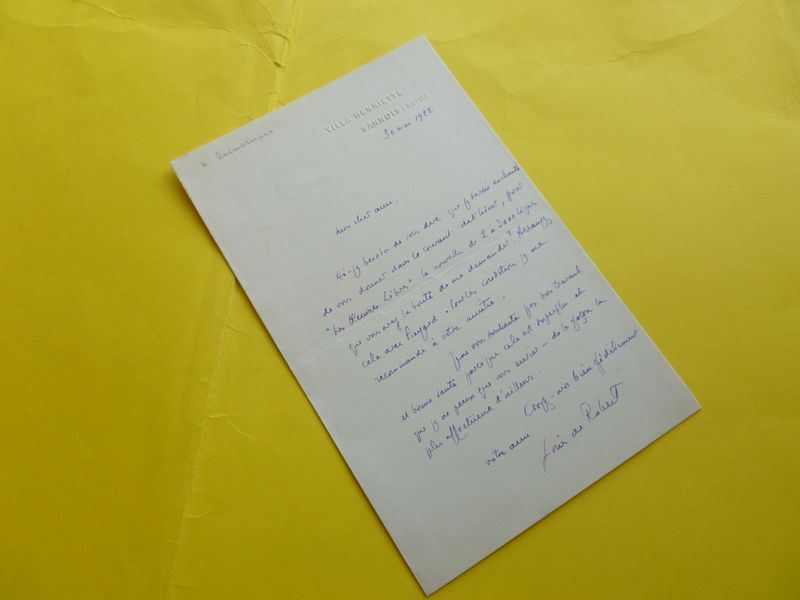 à Duvernois
VILLA HENRIETTE
SANNOIS (S.&O.)
30 mai 1922
Mon cher ami,
Ai-je besoin de vous dire que je serais enchanté
de vous donner dans le courant de l'hiver, pour
"Les Œuvres Libres" la nouvelle de 2 à 3000 lignes
que vous avez la bonté de me demander ? Arrangez
cela avec Fayard. Pour les conditions je me
recommande à votre amitié.
Je ne vous souhaite pas bon travail
et bonne santé parce que cela est superflu et
que je ne peux que vous envier – de la façon la
plus affectueuse d'ailleurs.
Croyez-moi bien fidèlement
votre ami
Louis de Robert